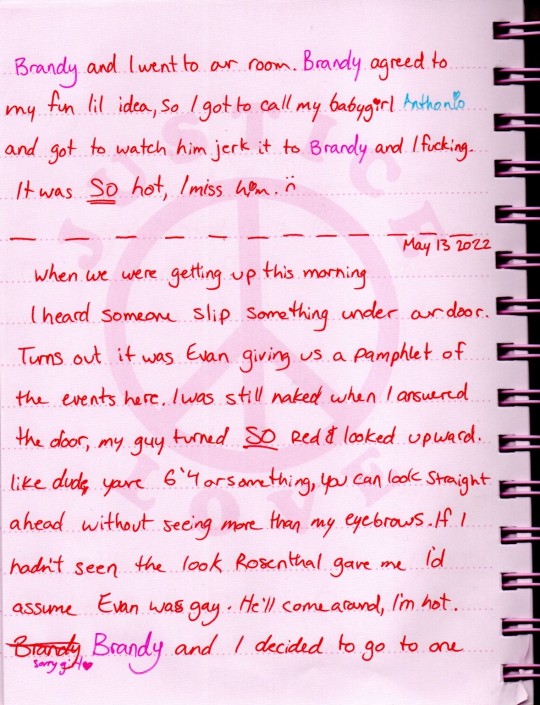 Brandy and I went to our room. Brandy agreed to
my fun lil idea, so I got to call my babygirl Anthonio
and got to watch him jerk it to Brandy and I fucking.
It was SO hot, I miss him. :(
May 13 2022
When we were getting up this morning
I heard someone slip something under our door.
Turns out it was Evan giving us a pamphlet of
the events here. I was still naked when I answered
the door, my guy turned SO red & looked upward.
like dude, youre 6'4 or something, you can look straight
ahead without seeing more than my eyebrows. If I
hadn't seen the look Rosenthal gave me I'd
assume Evan was gay. He'll come around, I'm hot.
Brandy Brandy and I decided to go to one
sorry girl ♥
JUSTICE
LOVE